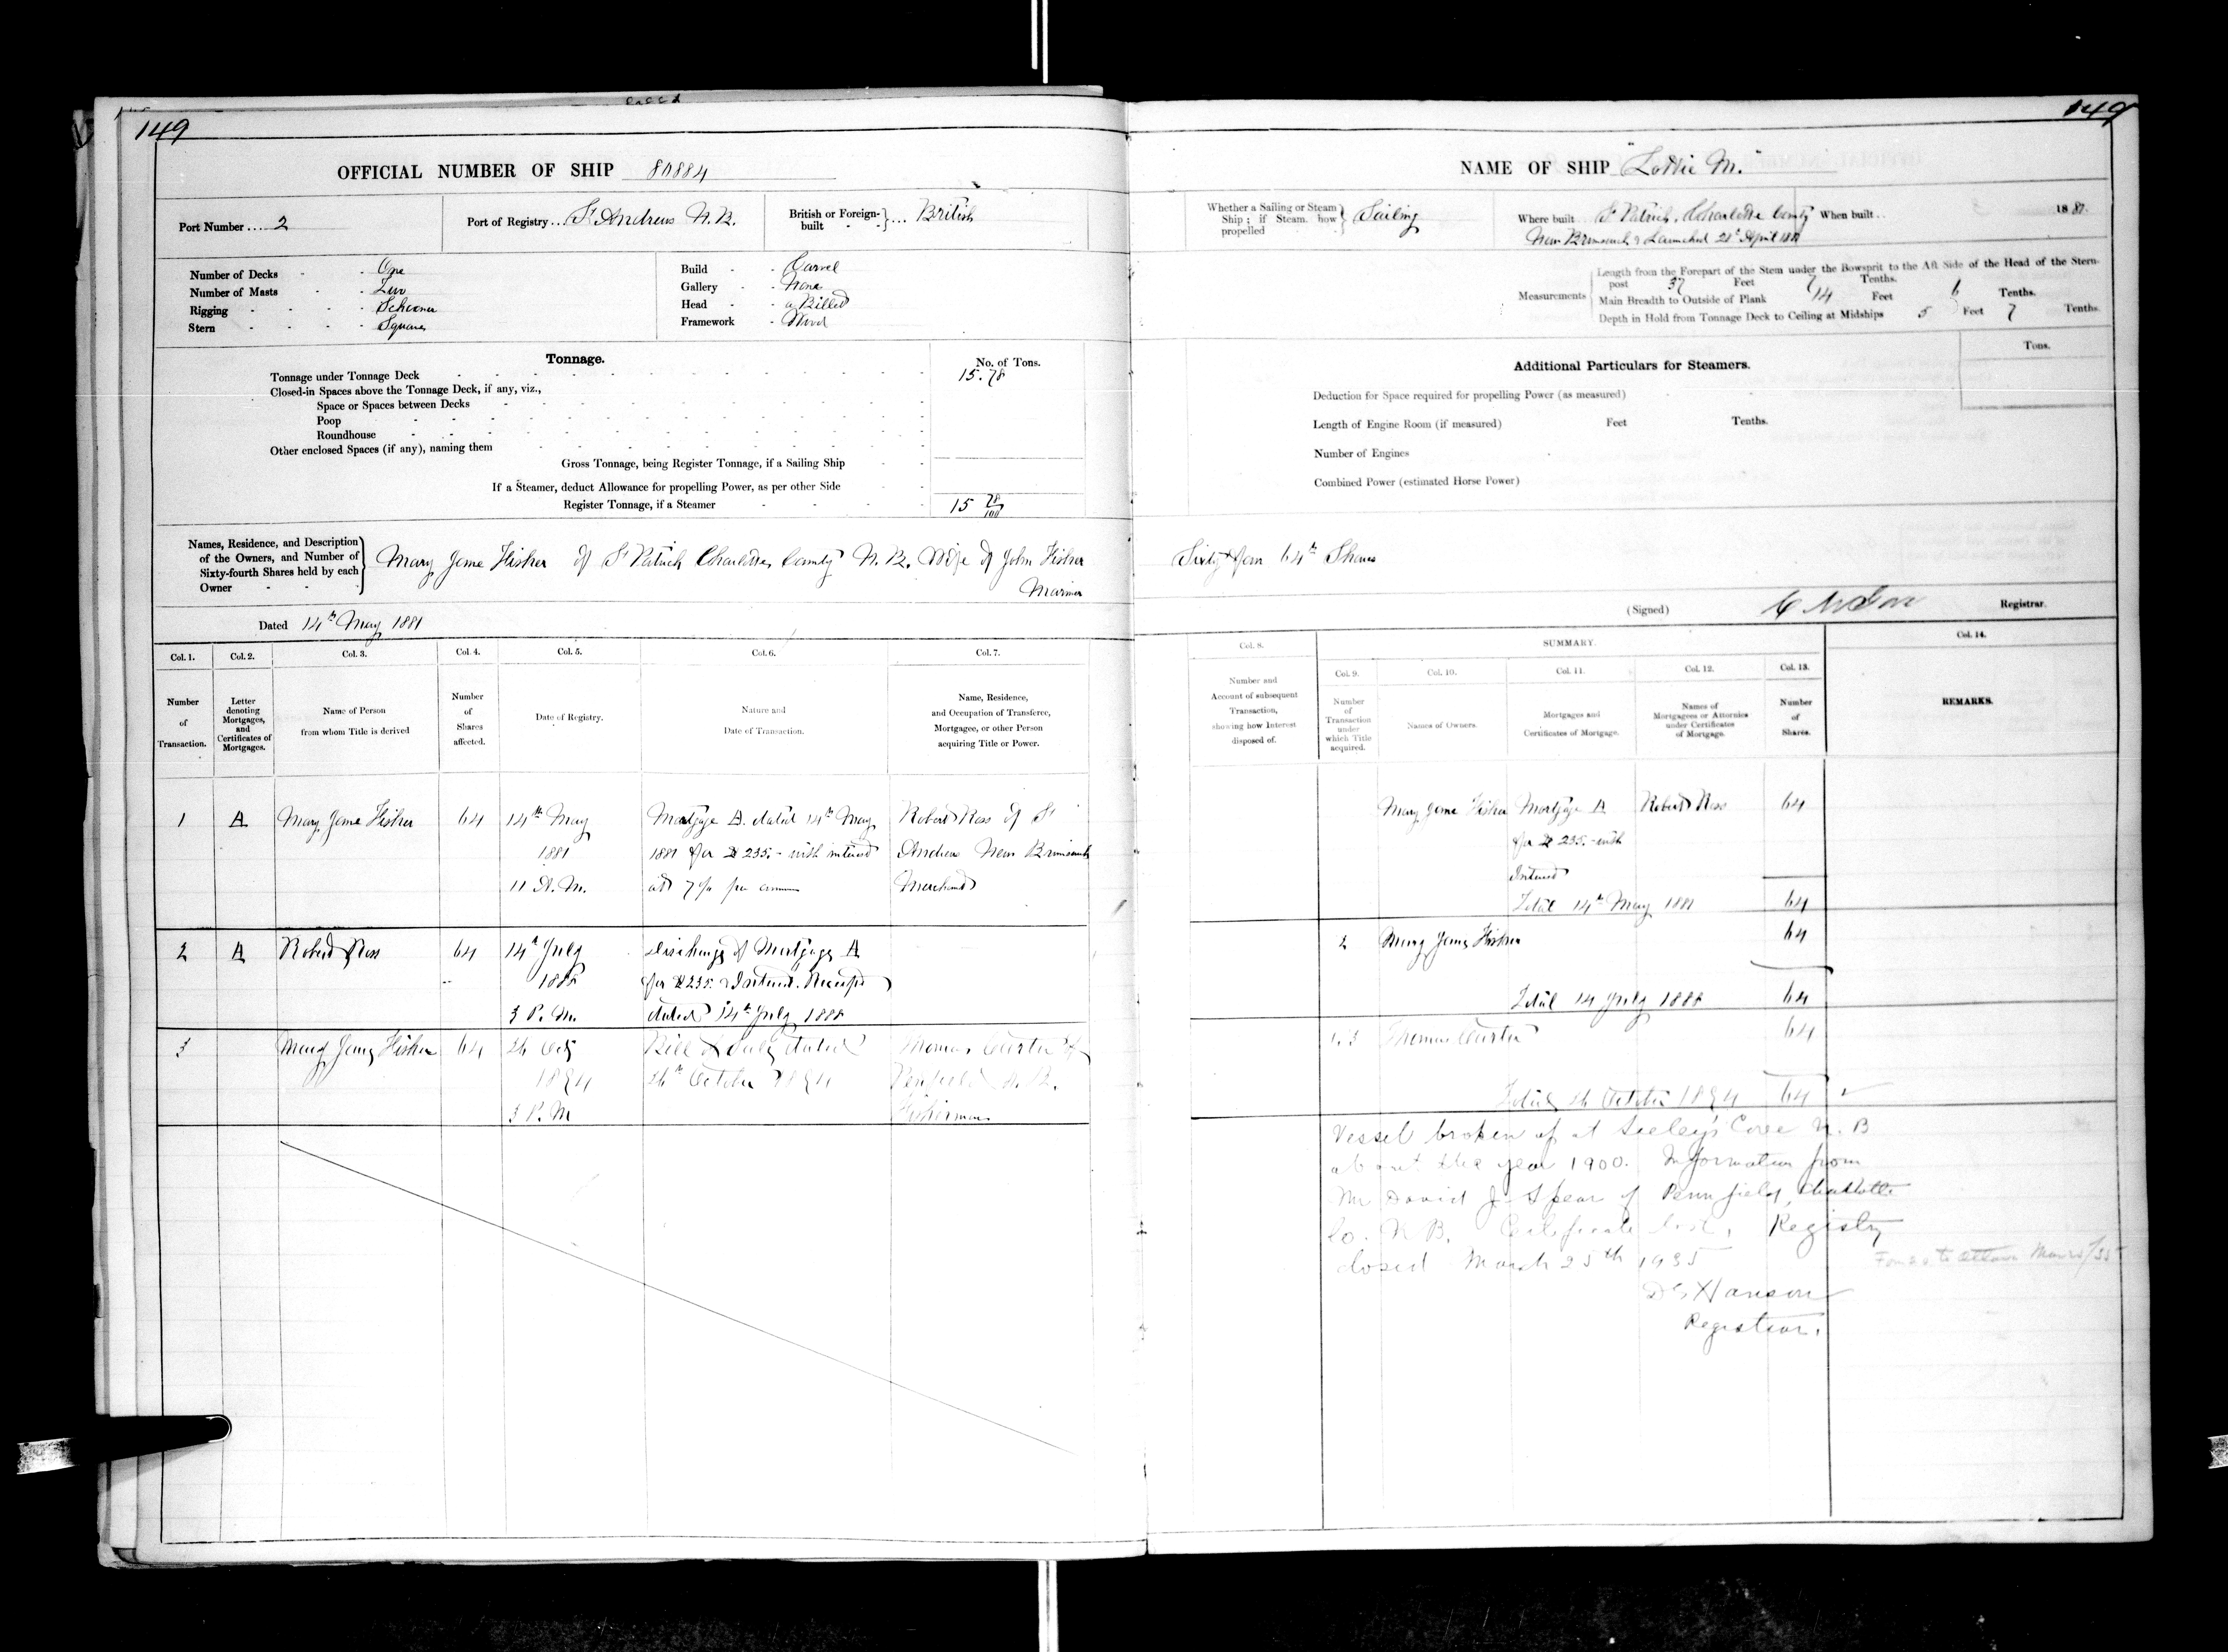 149
OFFICIAL NUMBER OF SHIP 80884
Port Number .... 2
Port of Registry ... St Andrews N.B.
British or Foreign-built - - } ... British
Number of Decks - - One
Number of Masts - - Two
Rigging - - - - Schooner
Stern - - - - Square
Build - - Carvel
Gallery - - None
Head - - a Billet
Framework - Wood
Tonnage.
No. of Tons.
Tonnage under Tonnage Deck 15.78
Closed-in Spaces above the Tonnage Deck, if any, viz.,
Space or Spaces between Decks
Poop
Roundhouse
Other enclosed Spaces (if any), naming them
Gross Tonnage, being Register Tonnage, if a Sailing Ship
If a Steamer, deduct Allowance for propelling Power, as per other Side
Register Tonnage, if a Steamer 15 78/100
Names, Residence, and Description
of the Owners, and Number of
Sixty-fourth Shares held by each
Owner
Mary Jane Fisher of St Patrick Charlotte County N.B. Wife of John Fisher
Mariner
Dated 14th May 1881
Col. 1. Col. 2. Col. 3. Col. 4. Col. 5. Col. 6. Col. 7.
Number of Transaction.
Letter denoting Mortgages, and Certificates of Mortgages.
Name of Person from whom Title is derived
Number of Shares affected.
Date of Registry.
Nature and Date of Transaction.
Name, Residence, and Occupation of Transferee, Mortgagee, or other Person acquiring Title or Power.
1 A Mary Jane Fisher 64 14th May Mortgage A. dated 14th May Robert Ross of St
1881 1881 for $ 235.- with interest Andrews New Brunswick
11 A.M. at 7% per annum Merchant
2 A Robert Ross 64 14th July Discharge of Mortgage A
1888 for $235. & Interest. Receipt
3 P.M. dated 14th July 1888
3 Mary Jane Fisher 64 26 Oct Bill of Sale dated Thomas Carter of
1894 26th October 1894 Penfield N.B.
3 P.M Fisherman
149
NAME OF SHIP "Lottie M."
Whether a Sailing or Steam
Ship; if Steam, how
propelled
Sailing
Where built .. St Patrick, Charlotte County When built .. 1881.
New Brunswick & Launched 28th April 1881
Measurements
Length from the Forepart of the Stem under the Bowsprit to the Aft Side of the Head of the Stern-
post 37 Feet 7 Tenths.
Main Breadth to Outside of Plank 14 Feet 6 Tenths.
Depth in Hold from Tonnage Deck to Ceiling at Midships 5 Feet 7 Tenths.
Additional Particulars for Steamers.
Tons.
Deduction for Space required for propelling Power (as measured)
Length of Engine Room (if measured) Feet Tenths.
Number of Engines
Combined Power (estimated Horse Power)
Sixty four 64th Shares
(Signed) Registrar.
Col. 8. SUMMARY. Col. 14.
Col. 9. Col. 10. Col. 11. Col. 12. Col. 13.
Number and Account of subsequent Transaction, showing how Interest disposed of.
Number of Transaction under which Title acquired.
Names of Owners.
Mortgages and Certificates of Mortgage.
Names of Mortgagees or Attornies under Certificates of Mortgage.
Number of Shares.
REMARKS.
Mary Jane Fisher Mortgage A Robert Ross 64
for $ 235.- with
Interest
Total 14th May 1881 64
2 Mary Jane Fisher 64
Total 14 July 1888 64
3 Thomas Carter 64
Total 26 October 1894 64
Vessel broken up at Seeley's Cove N.B
about the year 1900. Information from
Mr David J. Spear of Pennfield, Charlotte
Co. N B. Certificate lost, Registry
closed March 25th 1935
Hanson
Registrar.
to Ottawa